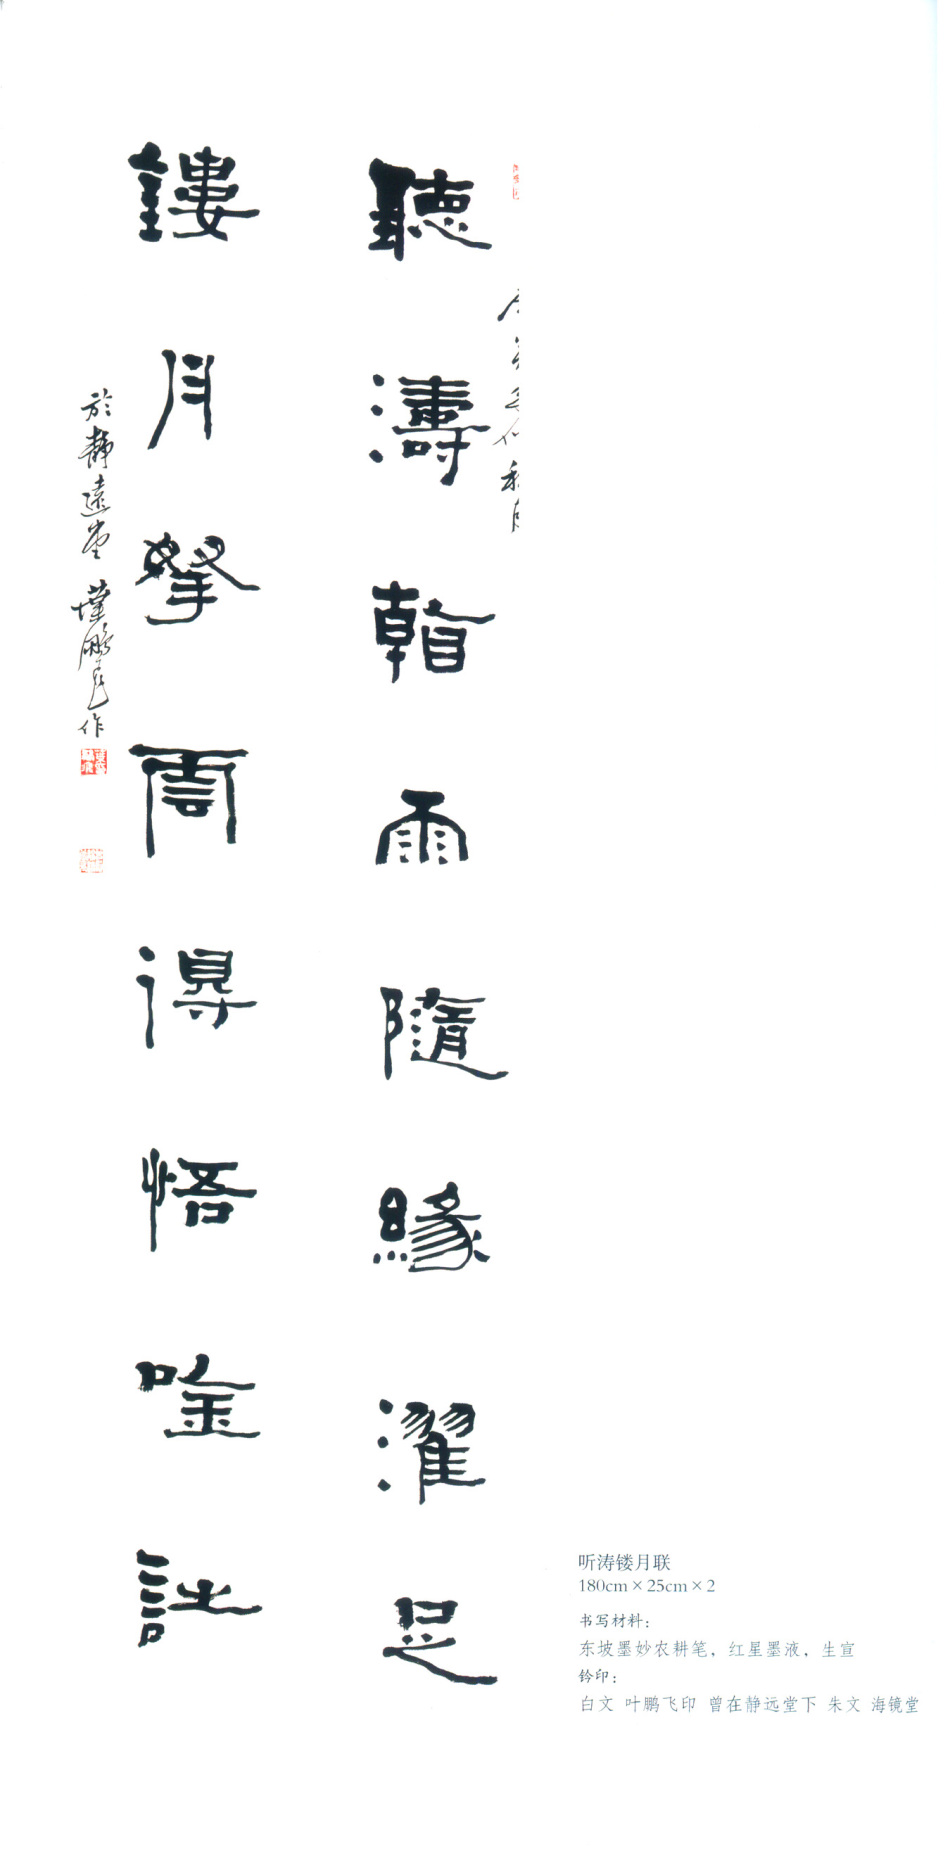 聽濤雨隨緣濯足
鏤月拏雲得悟唫詩
於靜遠堂 葉鵬飛作
听涛镂月联
180cm×25cm×2
书写材料：
东坡墨妙农耕笔，红星墨液，生宣
钤印：
白文 叶鹏飞印 曾在静远堂下 朱文 海镜堂